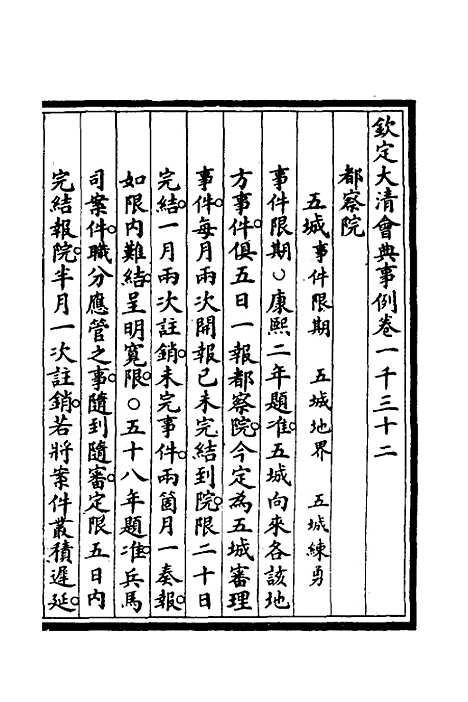 欽定大清會典事例卷一千三十二
都察院
五城事件限期　五城地界　五城練勇
事件限期○康熙二年題准。五城向來各該地
方事件。俱五日一報都察院。今定為五城審理
事件。每月兩次開報已未完結到院。限二十日
完結。一月兩次註銷。未完事件。兩箇月一奏報。
如限內難結。呈明寬限。○五十八年題准。兵馬
司案件。職分應管之事。隨到隨審。定限五日內
完結報院。半月一次註銷。若將案件叢積遲延。